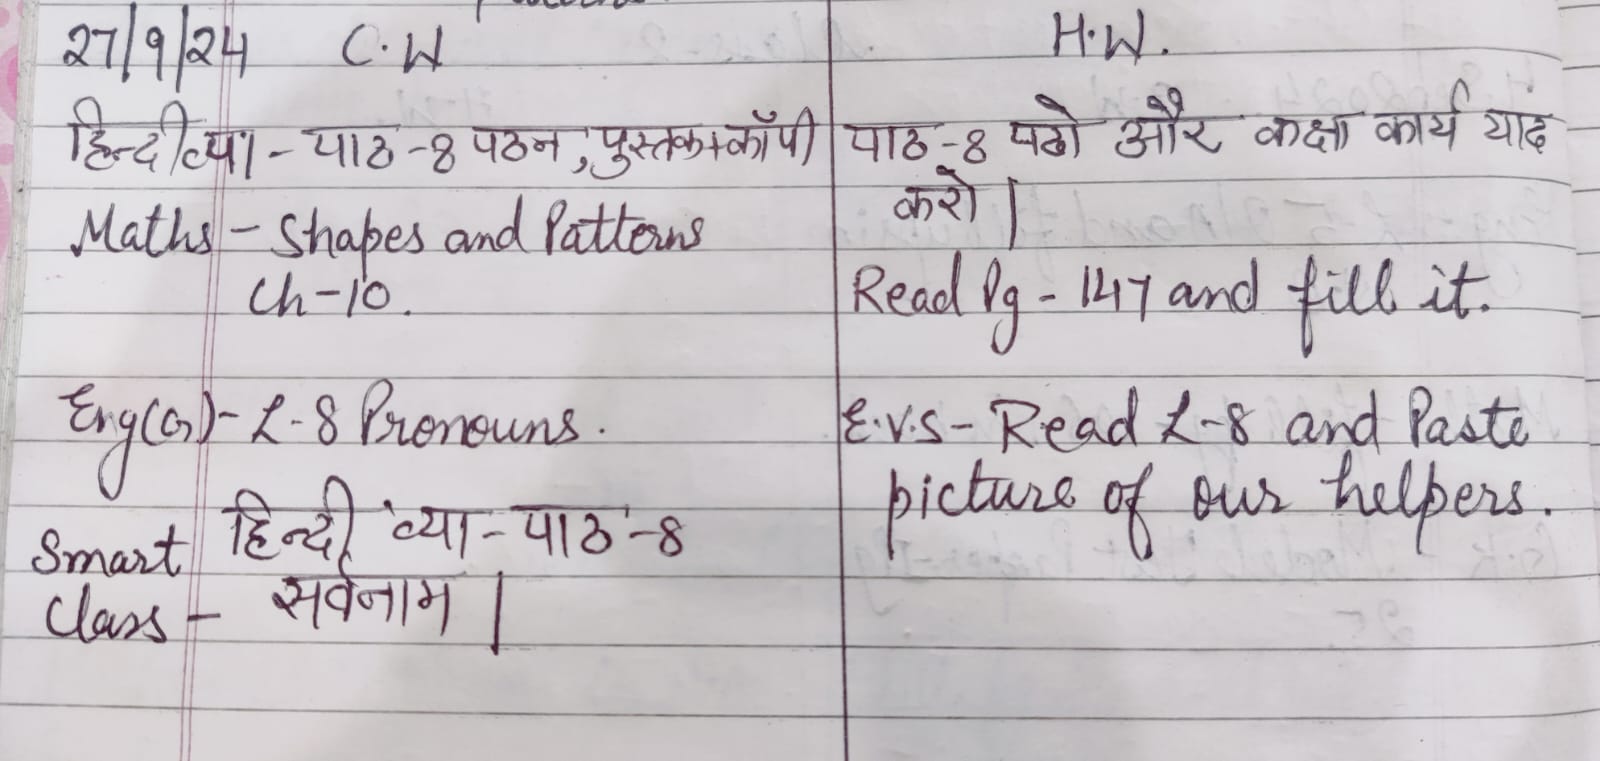 27/9/24 C.W H.W.
हिन्दी व्या - पाठ - 8 पठन, पुस्तक+कॉपी
पाठ - 8 पढो और कक्षा कार्य याद
करो।
Maths - Shapes and Patterns
Ch-10.
Read Pg - 147 and fill it.
Eng(G)- L-8 Pronouns.
E.V.S- Read L-8 and Paste
picture of our helpers.
Smart Class -
हिन्दी व्या - पाठ - 8
सर्वनाम।